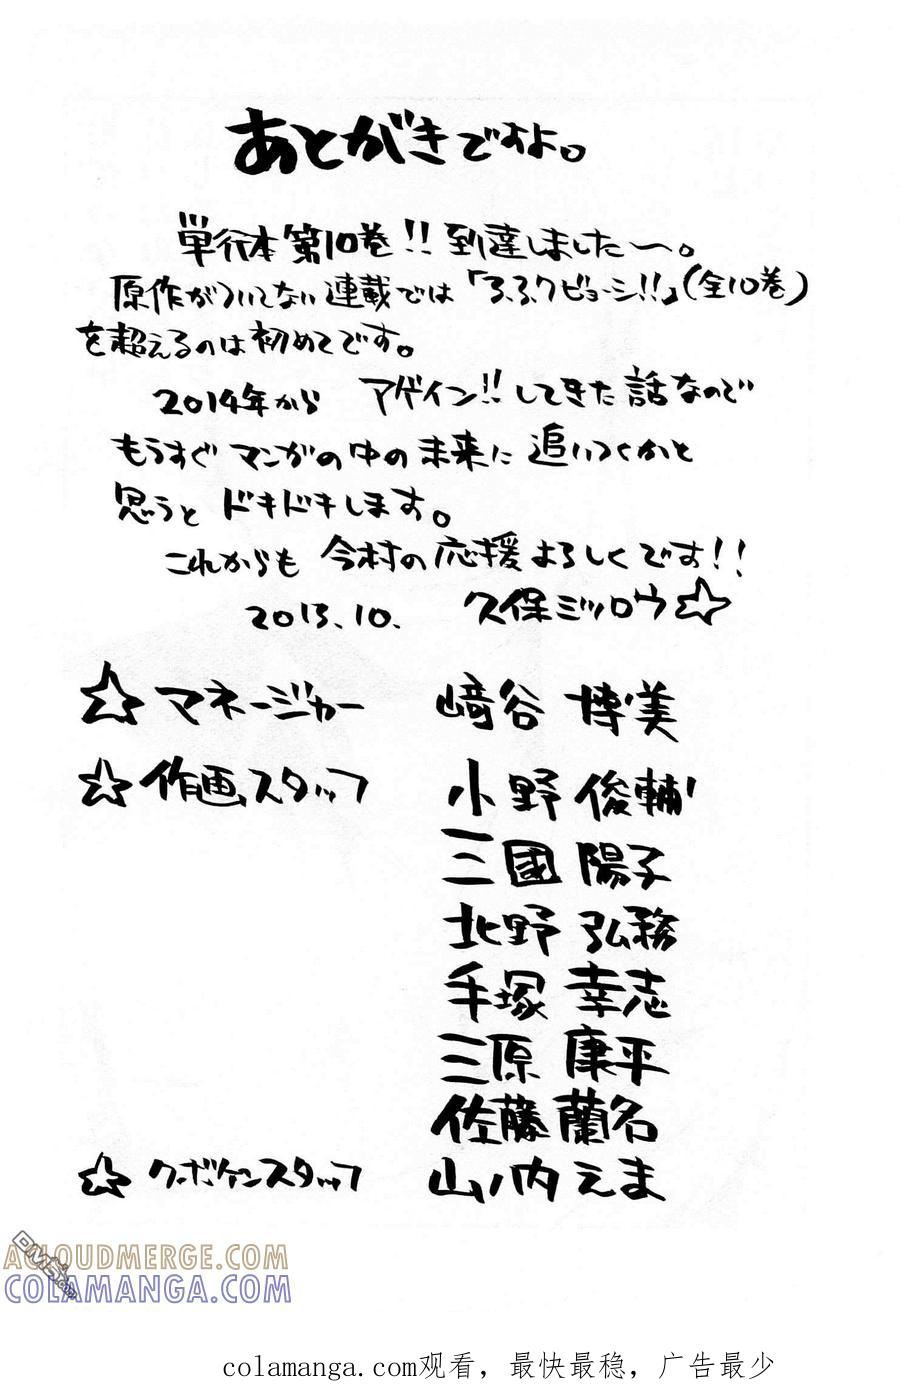 あとがきですよ。
単行本第10巻!!到達しました〜。
原作がついてない連載では「3.3.7ビョーシ!!」(全10巻)
を超えるのは初めてです。
2014年から アゲイン!!してきた話なので
もうすぐマンガの中の未来に追いつくかと
思うとドキドキします。
これからも 今村の応援よろしくです!!
2013.10. 久保ミツロウ☆
☆マネージャー 﨑谷 博美
☆作画スタッフ 小野 俊輔
三國 陽子
北野 弘務
手塚 幸志
三原 康平
佐藤 蘭名
☆クボケンスタッフ 山ノ内 えま
ACLOUDMERGE.COM
COLAMANGA.COM
colamanga.com观看，最快最稳，广告最少